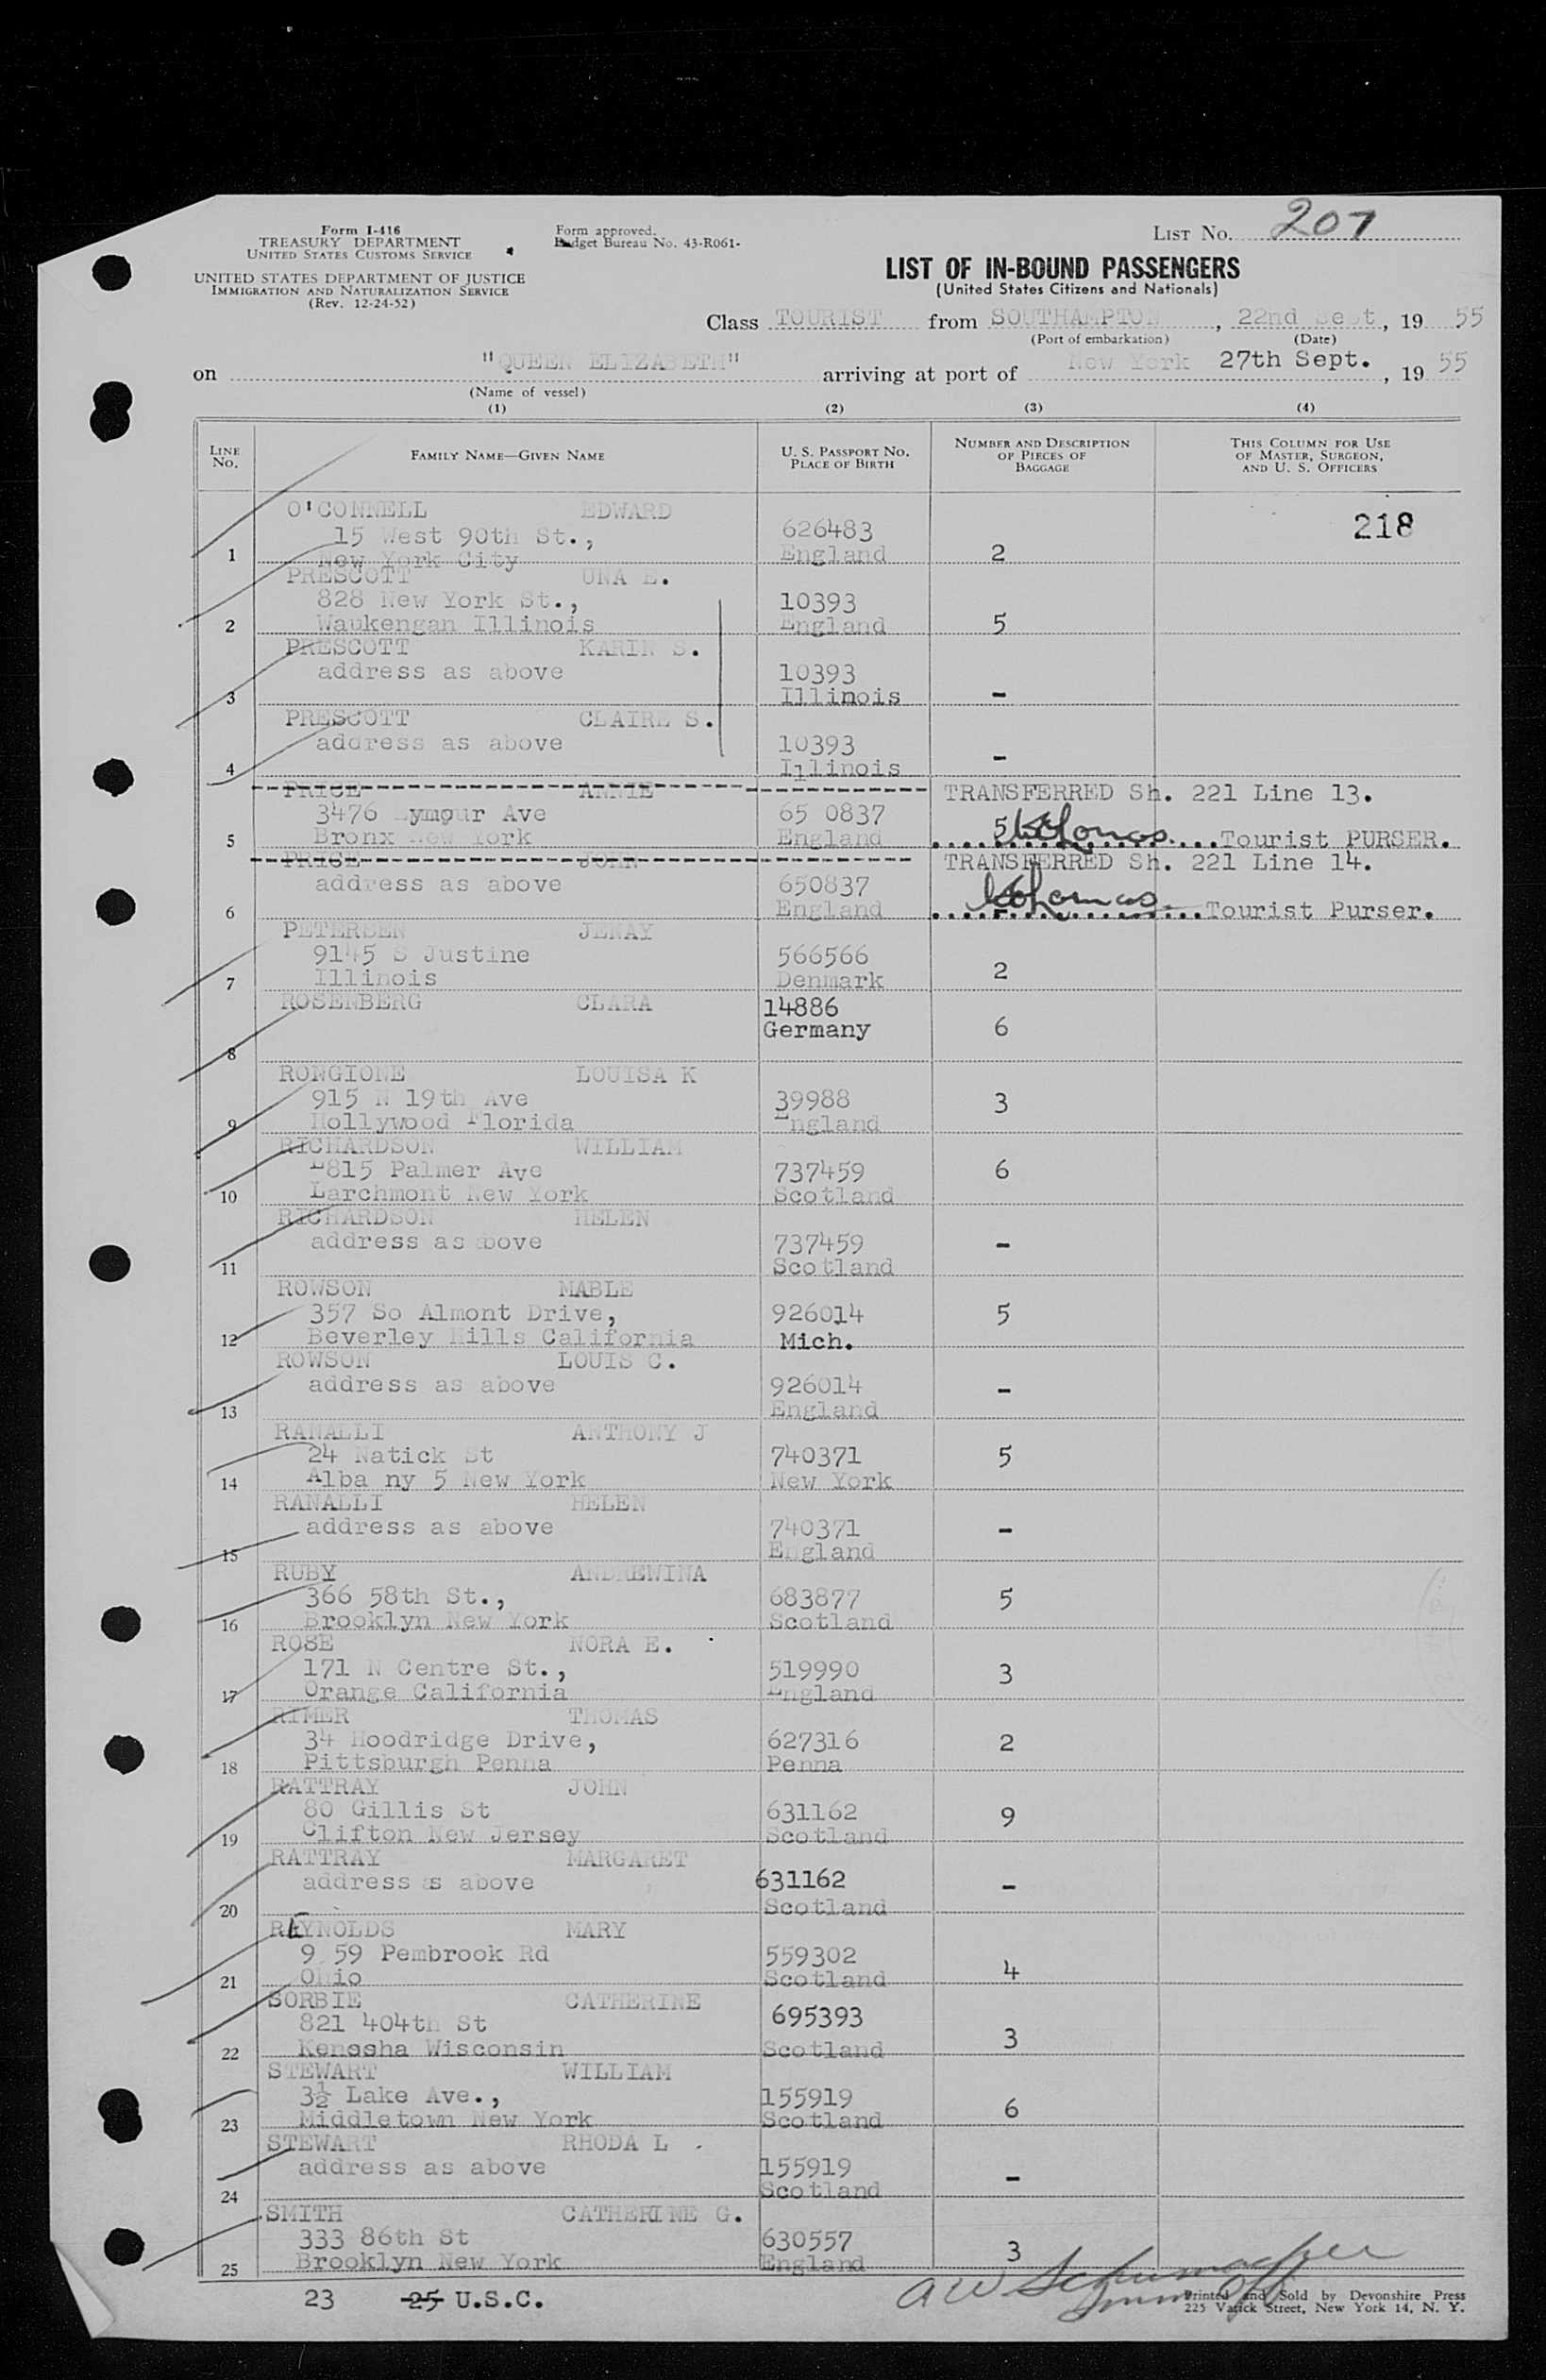 Form I-416
TREASURY DEPARTMENT
UNITED STATES CUSTOMS SERVICE
UNITED STATES DEPARTMENT OF JUSTICE
IMMIGRATION AND NATURALIZATION SERVICE
(Rev. 12-24-52)
Form approved.
Budget Bureau No. 43-R061-
LIST NO. 207
LIST OF IN-BOUND PASSENGERS
(United States Citizens and Nationals)
Class TOURIST from SOUTHAMPTON, 22nd Sept, 19 55
(Port of embarkation) (Date)
on "QUEEN ELIZABETH" arriving at port of New York 27th Sept., 19 55
(Name of vessel)
(1) (2) (3) (4)
LINE NO. FAMILY NAME—GIVEN NAME U. S. PASSPORT NO. PLACE OF BIRTH NUMBER AND DESCRIPTION OF PIECES OF BAGGAGE THIS COLUMN FOR USE OF MASTER, SURGEON, AND U. S. OFFICERS
O'CONNELL EDWARD
15 West 90th St., 626483 218
1 New York City England 2
PRESCOTT UNA E.
828 New York St., 10393
2 Waukengan Illinois England 5
PRESCOTT KARIN S.
address as above 10393
3 Illinois -
PRESCOTT CLAIRE S.
address as above 10393
4 Illinois -
PRICE ANNIE TRANSFERRED Sh. 221 Line 13.
3476 ymour Ave 65 0837
5 Bronx New York England 5 Tourist PURSER.
PRICE JOHN TRANSFERRED Sh. 221 Line 14.
address as above 650837
6 England Tourist Purser.
PETERSEN JENAY
9145 S Justine 566566
7 Illinois Denmark 2
ROSENBERG CLARA 14886
Germany 6
8
RONGIONE LOUISA K
915 N 19th Ave 39988 3
9 Hollywood Florida England
RICHARDSON WILLIAM
815 Palmer Ave 737459 6
10 Larchmont New York Scotland
RICHARDSON HELEN
address as above 737459 -
11 Scotland
ROWSON MABLE
357 So Almont Drive, 926014 5
12 Beverley Hills California Mich.
ROWSON LOUIS C.
address as above 926014 -
13 England
RANALLI ANTHONY J
24 Natick St 740371 5
14 Alba ny 5 New York New York
RANALLI HELEN
address as above 740371 -
15 England
RUBY ANDREWINA
366 58th St., 683877 5
16 Brooklyn New York Scotland
ROSE NORA E.
171 N Centre St., 519990 3
17 Orange California England
RIMER THOMAS
34 Hoodridge Drive, 627316 2
18 Pittsburgh Penna Penna
RATTRAY JOHN
80 Gillis St 631162 9
19 Clifton New Jersey Scotland
RATTRAY MARGARET
address as above 631162 -
20 Scotland
REYNOLDS MARY
9 59 Pembrook Rd 559302
21 Ohio Scotland 4
SORBIE CATHERINE
821 404th St 695393
22 Kenosha Wisconsin Scotland 3
STEWART WILLIAM
3½ Lake Ave., 155919 6
23 Middletown New York Scotland
STEWART RHODA L
address as above 155919 -
24 Scotland
SMITH CATHERINE G.
333 86th St 630557 3
25 Brooklyn New York England
23 25 U.S.C. A W Schumacher
Printed and Sold by Devonshire Press
225 Varick Street, New York 14, N. Y.